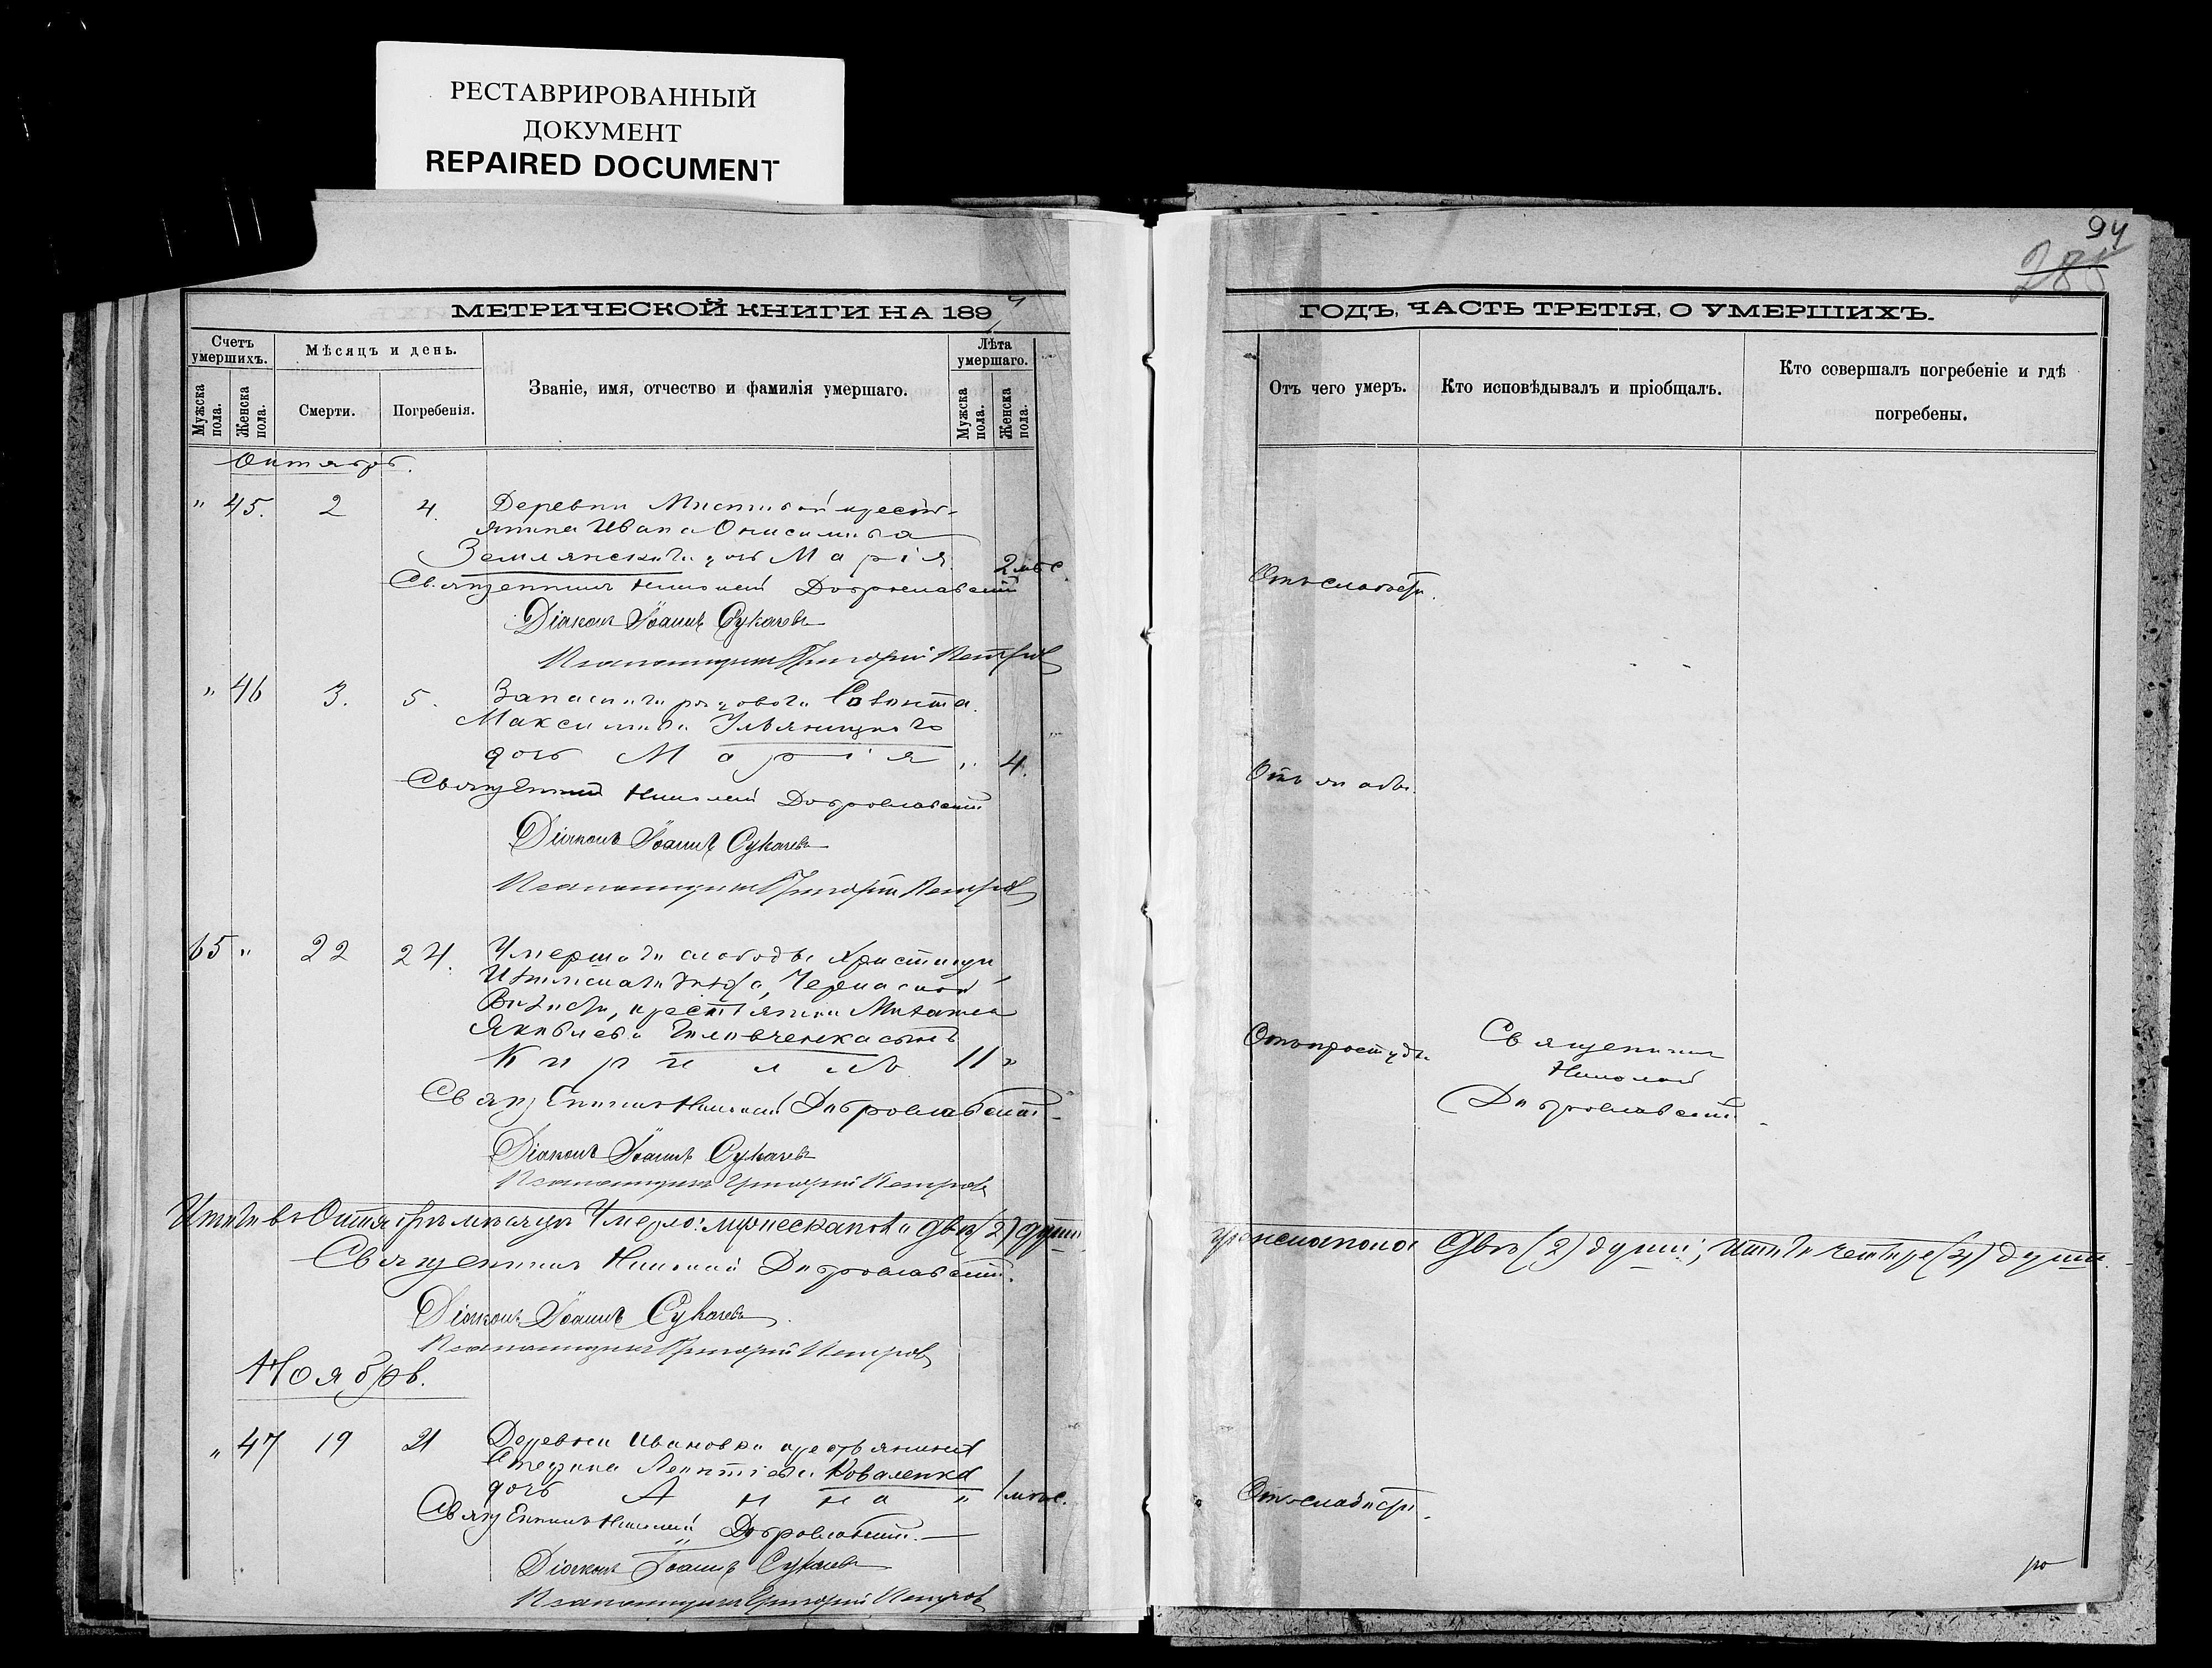 РЕСТАВРИРОВАННЫЙ
ДОКУМЕНТ
REPAIRED DOCUMENT
94
285
МЕТРИЧЕСКОЙ КНИГИ НА 1894
ГОДЪ, ЧАСТЬ ТРЕТІЯ, О УМЕРШИХЪ.
Счетъ умершихъ.
Мужска пола.
Женска пола.
Мѣсяцъ и день.
Смерти.
Погребенія.
Званіе, имя, отчество и фамилія умершаго.
Лѣта умершаго.
Мужска пола.
Женска пола.
Отъ чего умеръ.
Кто исповѣдывалъ и пріобщалъ.
Кто совершалъ погребеніе и гдѣ
погребены.
Октябрь.
" 45. 2 4. Деревни кресть-
янина Ивана Онисимова
Землянскаго дочь Марія 2 мѣс.
Отъ слабости.
Священникъ Николай Доброславскій
Діаконъ Іоаннъ Сукачевъ
Псаломщикъ Григорій Петровъ
" 46 3. 5. Запаснаго рядового
Максимова Ульяницкаго
дочь Марія " 4.
Священникъ Николай Доброславскій
Діаконъ Іоаннъ Сукачевъ
Псаломщикъ Григорій Петровъ
65 " 22 24. Умершаго слободы
крестьянина Михаила
Яковлева сынъ
Кириллъ 11 "
Отъ простуды.
Священникъ
Николай
Доброславскій.
Священникъ Николай Доброславскій
Діаконъ Іоаннъ Сукачевъ
Псаломщикъ Григорій Петровъ
Итого въ Октябрѣ мѣсяцѣ Умерло: мужеска пола двѣ (2) души
женска пола двѣ (2) души; итого четыре (4) души.
Священникъ Николай Доброславскій.
Діаконъ Іоаннъ Сукачевъ
Псаломщикъ Григорій Петровъ
Ноябрь.
" 47 19 21 Деревни Ивановки крестьянина
Леонтіева Коваленка
дочь Анна " 1 мѣс.
Отъ слабости.
Священникъ Николай Доброславскій.
Діаконъ Іоаннъ Сукачевъ
Псаломщикъ Григорій Петровъ